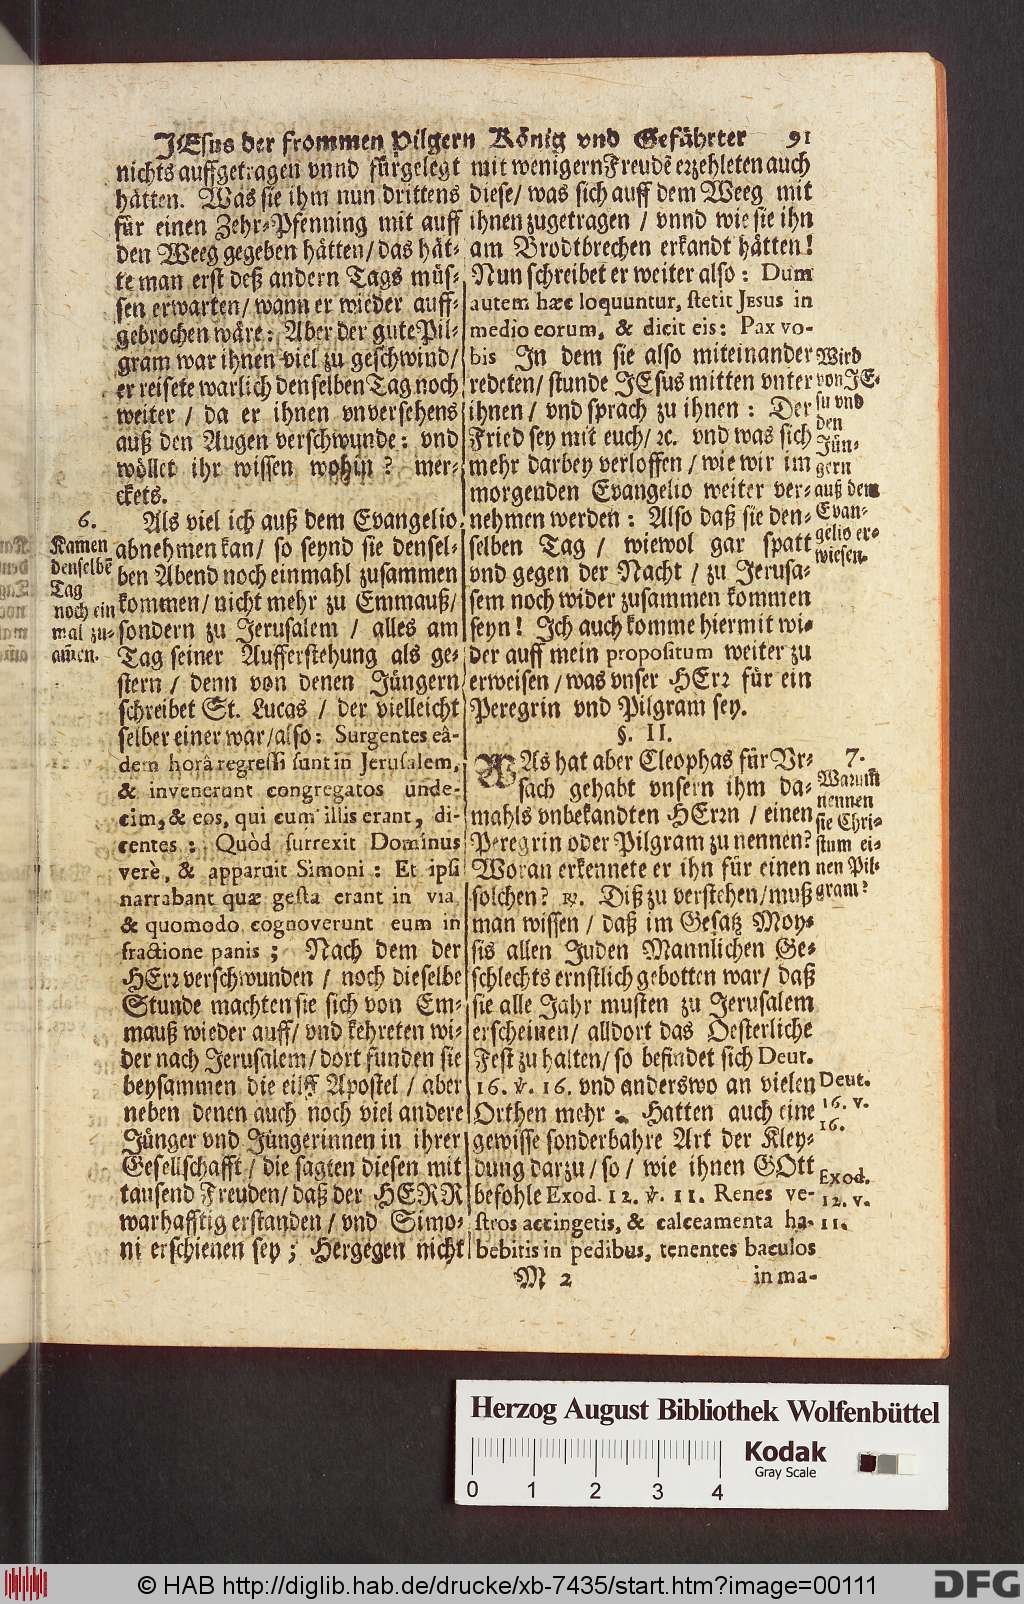 JEsus der frommen Pilgern König vnd Gefährter 91
nichts auffgetragen vnnd fürgelegt
hätten. Was sie ihm nun drittens
für einen Zehr-Pfenning mit auff
den Weeg gegeben hätten/ das hät-
te man erst deß andern Tags müs-
sen erwarten/ wann er wieder auff-
gebrochen wäre: Aber der gute Pil-
gram war ihnen viel zu geschwind/
er reisete warlich denselben Tag noch
weiter / da er ihnen vnversehens
auß den Augen verschwunde: vnd
wöllet ihr wissen wohin? mer-
ckets.
6.
Kamen
denselbē
Tag
noch ein
mal zu-
sam̄en.
Als viel ich auß dem Evangelio
abnehmen kan/ so seynd sie densel-
ben Abend noch einmahl zusammen
kommen/ nicht mehr zu Emmauß/
sondern zu Jerusalem / alles am
Tag seiner Aufferstehung als ge-
stern / denn von denen Jüngern
schreibet St. Lucas / der vielleicht
selber einer war/ also: Surgentes eâ-
dem horâ regressi sunt in Jerusalem,
& invenerunt congregatos unde-
cim, & eos, qui cum illis erant, di-
centes: Quòd surrexit Dominus
verè, & apparuit Simoni: Et ipsi
narrabant quæ gesta erant in via,
& quomodo cognoverunt eum in
fractione panis; Nach dem der
HErr verschwunden / noch dieselbe
Stunde machten sie sich von Em-
mauß wieder auff/ vnd kehreten wi-
der nach Jerusalem/ dort funden sie
beysammen die eilff Apostel / aber
neben denen auch noch viel andere
Jünger vnd Jüngerinnen in ihrer
Gesellschafft / die sagten diesen mit
tausend Freuden/ daß der HERR
warhafftig erstanden / vnd Simo-
ni erschienen sey; Hergegen nicht
mit wenigern Freudē erzehleten auch
diese/ was sich auff dem Weeg mit
ihnen zugetragen / vnnd wie sie ihn
am Brodtbrechen erkandt hätten!
Nun schreibet er weiter also: Dum
autem hæc loquuntur, stetit Jesus in
medio eorum, & dicit eis: Pax vo-
bis In dem sie also miteinander
redeten/ stunde JEsus mitten vnter
ihnen / vnd sprach zu ihnen: Der
Fried sey mit euch/ ꝛc. vnd was sich
mehr darbey verloffen / wie wir im
morgenden Evangelio weiter ver-
nehmen werden: Also daß sie den-
selben Tag / wiewol gar spatt
vnd gegen der Nacht / zu Jerusa-
lem noch wider zusammen kommen
seyn! Ich auch komme hiermit wi-
der auff mein propositum weiter zu
erweisen / was vnser HErr für ein
Peregrin vnd Pilgram sey.
Wird
von JE-
su vnd
den
Jün-
gern
auß dem
Evan-
gelio er-
wiesen.
§. II.
WAs hat aber Cleophas für Vr-
sach gehabt vnsern ihm da-
mahls vnbekandten HErrn / einen
Peregrin oder Pilgram zu nennen?
Woran erkennete er ihn für einen
solchen? ℟. Diß zu verstehen/ muß
man wissen / daß im Gesatz Moy-
sis allen Juden Mannlichen Ge-
schlechts ernstlich gebotten war/ daß
sie alle Jahr musten zu Jerusalem
erscheinen/ alldort das Oesterliche
Fest zu halten/ so befindet sich Deut.
16. ℣. 16. vnd anderswo an vielen
Orthen mehr: Hatten auch eine
gewisse sonderbahre Art der Kley-
dung darzu / so / wie ihnen GOtt
befohle Exod. 12. ℣. 11. Renes ve-
stros accingetis, & calceamenta ha-
bebitis in pedibus, tenentes baculos
7.
Warum̄
nennen
sie Chri-
stum ei-
nen Pil-
gram?
Deut.
16. v.
16.
Exod.
12. v.
11.
M 2
in ma-
Herzog August Bibliothek Wolfenbüttel
Kodak
Gray Scale
0 1 2 3 4
© HAB http://diglib.hab.de/drucke/xb-7435/start.htm?image=00111
DFG